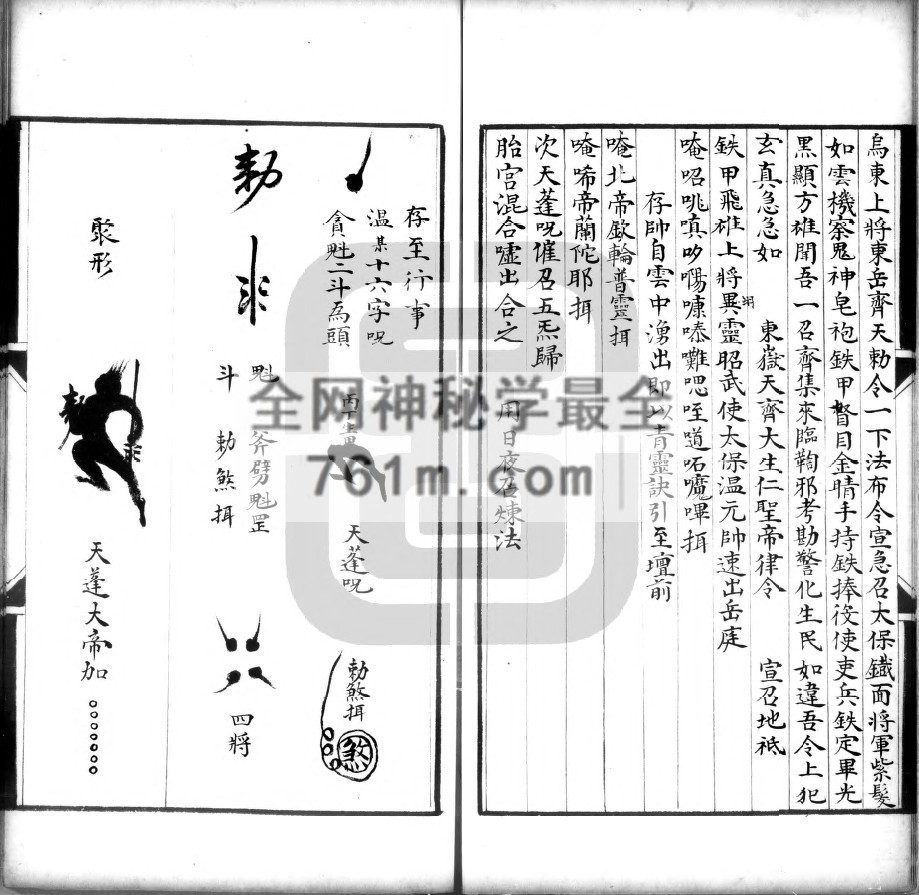 烏東上將東岳齊天勅令一下法布令宣急召太保鐵面將軍紫髮
如雲機察鬼神皂袍鉄甲瞖目金晴手持鉄捧役使吏兵鉄定畢光
黑顯方雄聞吾一召齊集來臨鞫邪考勘警化生民如違吾令上犯
玄真急急如 東嶽天齊大生仁聖帝律令 宣召地祗
鉄甲飛雄上將異靈昭武使太保温元帥速出岳庭
翊
唵召唬嗔吵㗽嗹嗪囄
存帥自雲中湧出即以青靈訣引至壇前
唵北帝欽輪普靈揖
唵唏帝蘭陀耶揖
次天蓬咒催召五炁歸
胎宮混合噓出合之 用日夜召煉法
存至行事
温某十六字咒
貪魁二斗為頭
天蓬咒
勅煞揖
煞
勅
魁 斧劈魁罡
斗 勅煞揖
四將
聚形
勅
天蓬大帝加
全网神秘学最全
761m.com